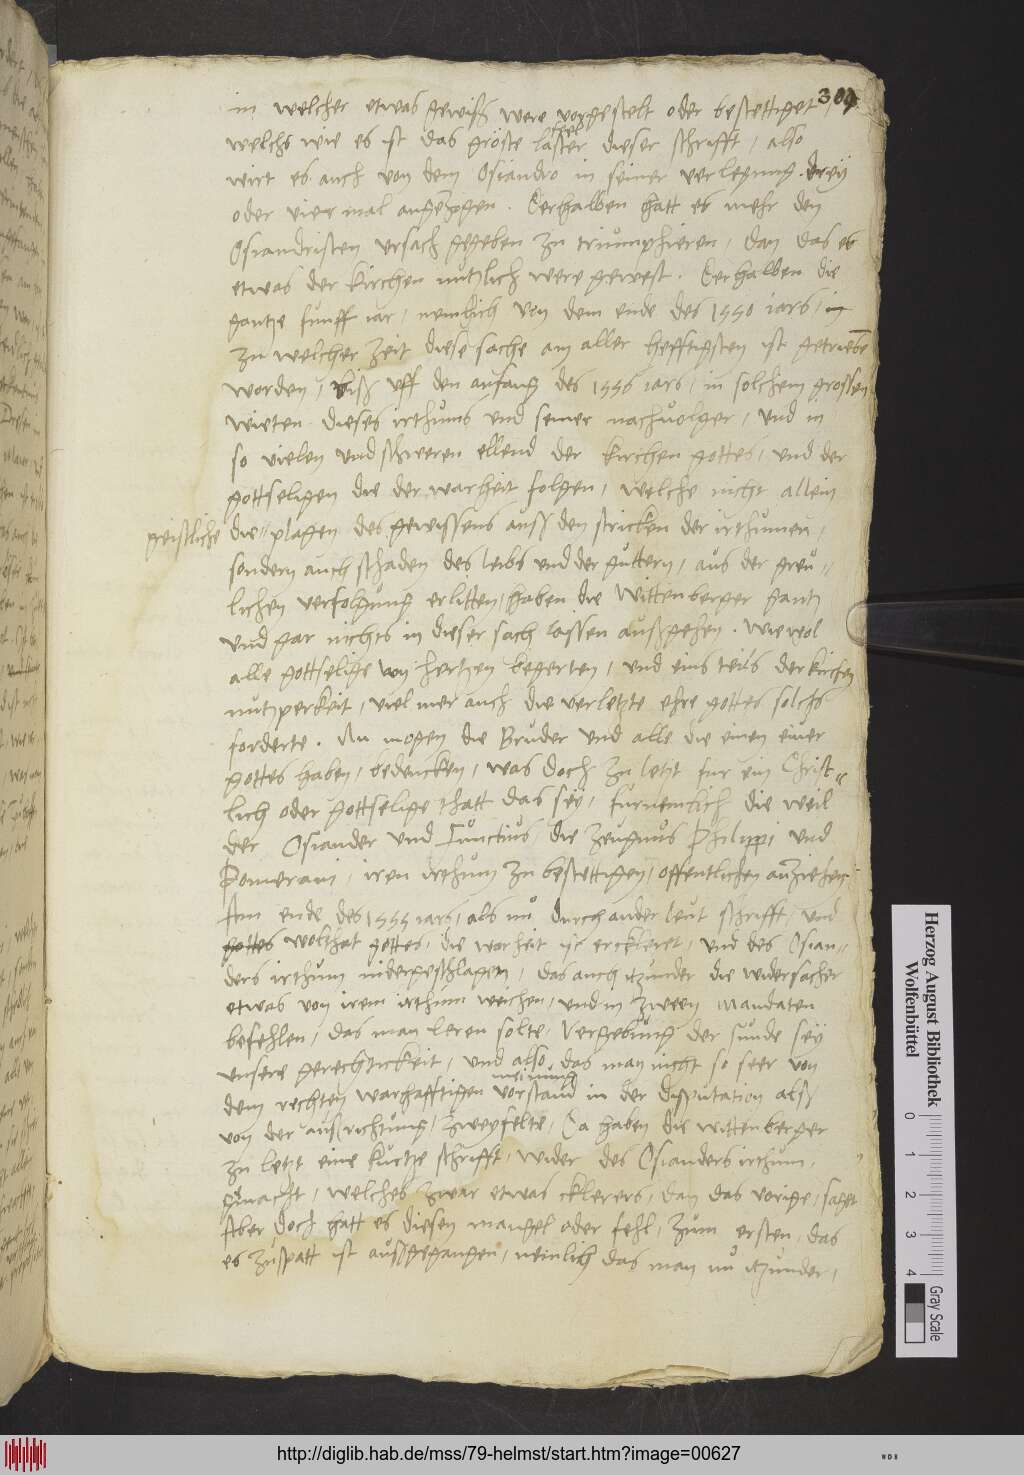 309
in welcher etwas gewiß were vorgestelt oder bestettiget
welchs wie es ist das gröste laster dieser schrifft, also
wirt es auch von dem Osiandro in seiner verlegung dreÿ
oder vier mal angezogen. Derhalben hatt es mehr den
Osiandristen ursach gegeben zu triumphieren, dan das es
etwas der kirchen nutzlich were gewest. Derhalben die
gantze funff iar, nemlich von dem ende des 1550 iars,
zu welcher zeit diese sache am aller hefftigsten ist getrieben
worden, biß uff den anfang des 1556 iars, in solchem grossen
wieten dieses irthums und seiner nachuolger, und in
so vielen und schweren ellend der kirchen gottes, und der
gottseligen die der warheit folgen, welche nicht allein
geistliche
die plagen des gewissens auß den stricken der irthumen,
sondern auch schaden des leibs und der guttern, aus der greu
lichen verfolgung erlitten, haben die Wittenberger gantz
und gar nichts in dieser sach lassen außgehen. Wie wol
alle gottselige von hertzen begerten, und eins teils der kirchen
nutzperkeit, viel mer auch die verletzte ehre gottes solchs
forderte. Nu mogen die Bruder und alle die einen eiver
gottes haben, bedencken, was doch zu letzt fur ein Christ
lich oder gottselige thatt das seÿ, furnemlich die weil
der Osiander und Functius, die zeugnus Philippi und
Pomerani, iren irthum zu bestettigen, offentlichen anziehen.
Am ende des 1555 iars, als nu durch ander leut schrifft, und
gottes wolthat gottes, die warheit ist erckleret, und des Osian
ders irthum nidergeschlagen, das auch itzunder die widersacher
etwas von irem irthum weichen, und in zween Mandaten
befehlen, das man leren solte, Vergebung der sunde seÿ
unsere gerechtickeit, und also das man nicht so seer von
meinung
dem rechten warhafftigen vorstand in der disputation alß
von der außrichtung, zweyfelte, Da haben die wittenberger
zu letzt eine kurtze schrifft, wider des Osianders irthum,
gemacht, welches zwar etwas cklerers, dan das vorige, saget
Aber doch hatt es diesen mangel oder fehl, zum ersten, das
es zuspatt ist außgegangen, nemlich das man nu itzunder,
Herzog August Bibliothek
Wolfenbüttel
0 1 2 3 4
Gray Scale
http://diglib.hab.de/mss/79-helmst/start.htm?image=00627